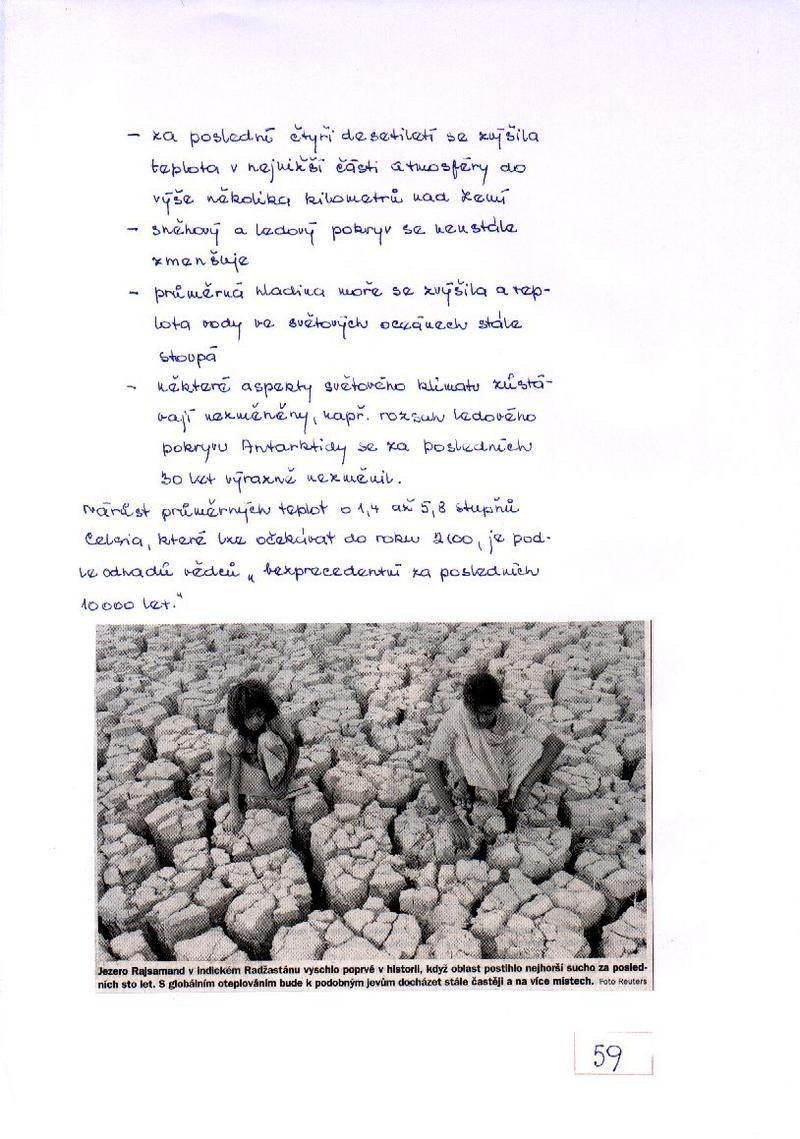 - za poslední čtyři desetiletí se zvýšila
teplota v nejnižší části atmosféry do
výše několika kilometrů nad Zemí
- sněhový a ledový pokryv se neustále
zmenšuje
- průměrná hladina moře se zvýšila a tep-
lota vody ve světových oceánech stále
stoupá
- některé aspekty světového klimatu zůstá-
vají nezměněny, např. rozsah ledového
pokryvu Antarktidy se za posledních
30 let výrazně nezměnil.
Nárůst průměrných teplot o 1,4 až 5,8 stupňů
Celsia, které lze očekávat do roku 2100, je pod-
le odhadů vědců „bezprecedentní za posledních
10000 let."
Jezero Rajsamand v indickém Radžastánu vyschlo poprvé v historii, když oblast postihlo nejhorší sucho za posled-
ních sto let. S globálním oteplováním bude k podobným jevům docházet stále častěji a na více místech. Foto Reuters
59